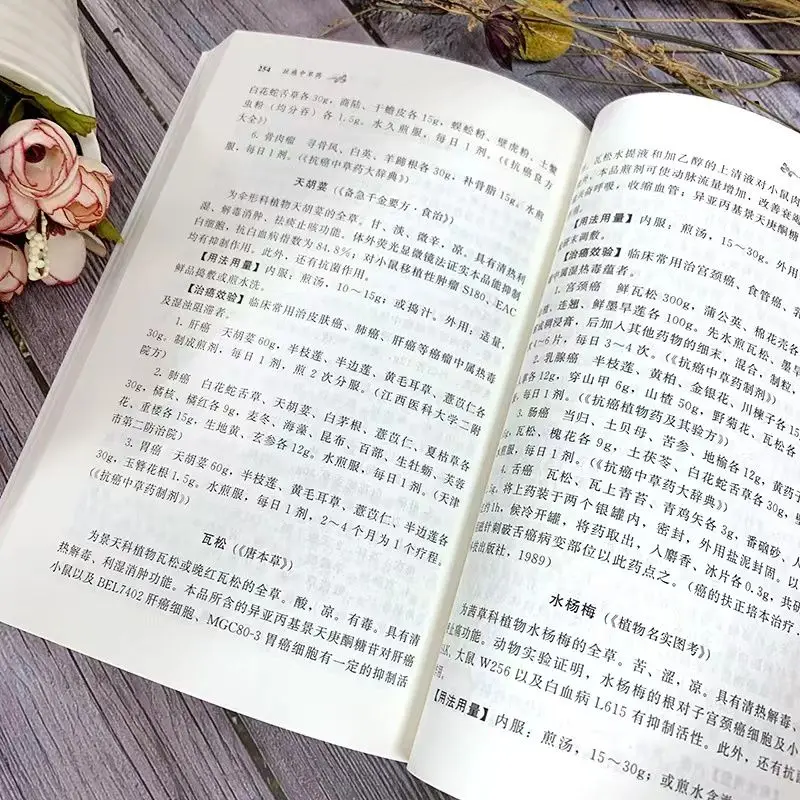 254 抗癌中草药
白花蛇舌草各30g,商陆、干蟾皮各15g,蜈蚣粉、壁虎粉、土鳖
虫粉(均分吞)各1.5g。水久煎服,每日1剂。(《抗癌良方
大全》)
6. 骨肉瘤 寻骨风、白英、羊蹄根各30g,补骨脂15g。水煎
服,每日1剂。(《抗癌中草药大辞典》)
天胡荽(《备急千金要方·食治》)
为伞形科植物天胡荽的全草。甘、淡、微辛,凉。具有清热利
湿、解毒消肿、祛痰止咳功能。体外荧光显微镜法证实本品能抑制
白细胞,抗白血病指数为84.8%;对小鼠移植性肿瘤S180、EAC
均有抑制作用。此外,还有抗菌作用。
【用法用量】内服:煎汤,10~15g;或捣汁。外用:适量,
鲜品捣敷或煎水洗。
【治癌效验】临床常用治皮肤癌、肺癌、肝癌等癌瘤中属热毒
及湿浊阻滞者。
1. 肝癌 天胡荽60g,半枝莲、半边莲、黄毛耳草、薏苡仁各
30g。制成煎剂,每日1剂,煎2次分服。(江西医科大学二附
院方)
2. 肺癌 白花蛇舌草、天胡荽、白茅根、薏苡仁、夏枯草各
30g,橘核、橘红各9g,麦冬、海藻、昆布、百部、生牡蛎、芙蓉
花、重楼各15g,生地黄、玄参各12g。水煎服,每日1剂。(天津
市第二防治院)
3. 胃癌 天胡荽60g,半枝莲、黄毛耳草、薏苡仁、半边莲各
30g,玉簪花根1.5g。水煎服,每日1剂,2~4个月为1个疗程。
(《抗癌中草药制剂》)
瓦松(《唐本草》)
为景天科植物瓦松或晚红瓦松的全草。酸,凉。有毒。具有清
热解毒、利湿消肿功能。本品所含的异亚丙基景天庚酮糖苷对肝癌
小鼠以及BEL7402肝癌细胞、MGC80-3胃癌细胞有一定的抑制活
瓦松水提液和加乙醇的上清液对小鼠肉
本品煎剂可使动脉流量增加,改善衰
呼吸,收缩血管;异亚丙基景天庚酮糖
【用法用量】内服:煎汤,15~30g。外用
研末调敷。
【治癌效验】临床常用治宫颈癌、食管癌、乳
中属湿热毒蕴者。
1. 宫颈癌 鲜瓦松300g,蒲公英、棉花壳各
、连翘、鲜墨旱莲各100g。先水煎瓦松、墨旱
成稠浸膏,后加入其他药物的细末,混合,制粒,
4~6片,每日3~4次。(《抗癌中草药制剂》)
2. 乳腺癌 半枝莲、黄柏、金银花、川楝子各15
各12g,穿山甲6g,山楂50g,野菊花、瓦松各
服,每日1剂。(《抗癌植物药及其验方》)
3. 肠癌 当归、土贝母、苦参、地榆各12g,黄药子
瓦松、槐花各9g,土茯苓、白花蛇舌草各30g,壁
每日1剂。(《抗癌中草药大辞典》)
4. 舌癌 瓦松、瓦上青苔、青鸡矢各3g,番硇砂、人
,将上药装于两个银罐内,密封,外用盐泥封固。以
约1h,候冷开罐,将药取出,入麝香、冰片各0.3g,共研
针刺破舌癌病变部位以此药点之。(癌的扶正培本治疗
技出版社,1989)
水杨梅(《植物名实图考》)
为茜草科植物水杨梅的全草。苦、涩,凉。具有清热解毒、
止痛功能。动物实验证明,水杨梅的根对子宫颈癌细胞及小
大鼠W256以及白血病L615有抑制活性。此外,还有抗
【用法用量】内服:煎汤,15~30g;或煎水含